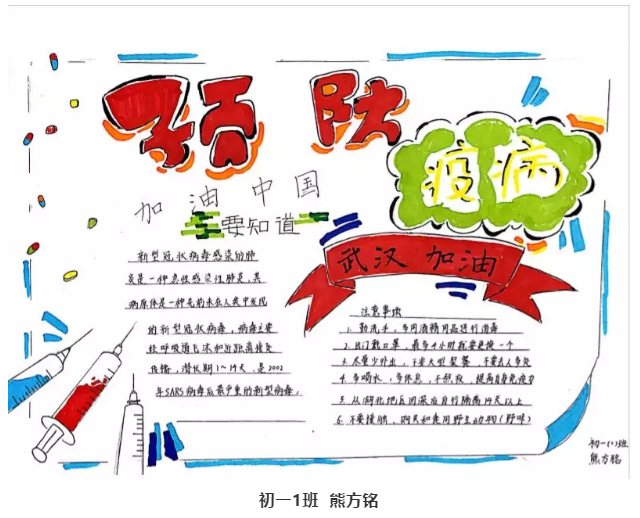 预防
疫病
加油中国
要知道
武汉 加油
新型冠状病毒感染的肺
炎是一种急性感染性肺炎，其
病原体是一种先前未在人类中发现
的新型冠状病毒，病毒主要
经呼吸道飞沫和近距离接触
传播，潜伏期1～14天，是2002
年SARS病毒后最严重的新型病毒。
注意事项
1. 勤洗手，多用酒精用品进行消毒
2. 出门戴口罩，最多4小时就要更换一个
3. 尽量少外出，不要大型聚餐，不要去人多处
4. 多喝水，多休息，不熬夜，提高自身免疫力
5. 从湖北地区回深后自行隔离14天以上
6. 不要接触、购买和食用野生动物（野味）
初一(1)班
熊方铭
初一1班 熊方铭